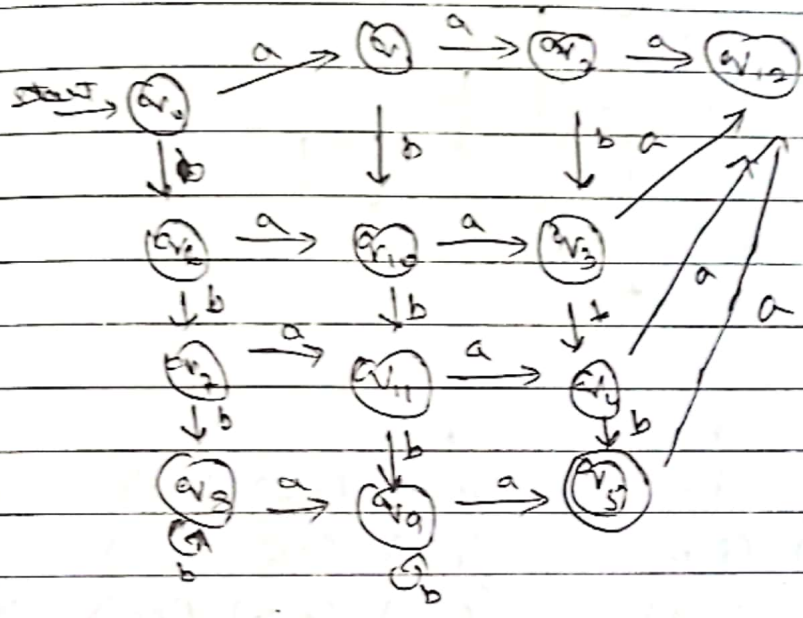 start q0 a q1 a q2 a q12
b b b a
q6 a q10 a q3
b b a a
q7 a q11 a q4
b b b
q8 a q9 a q5
b b